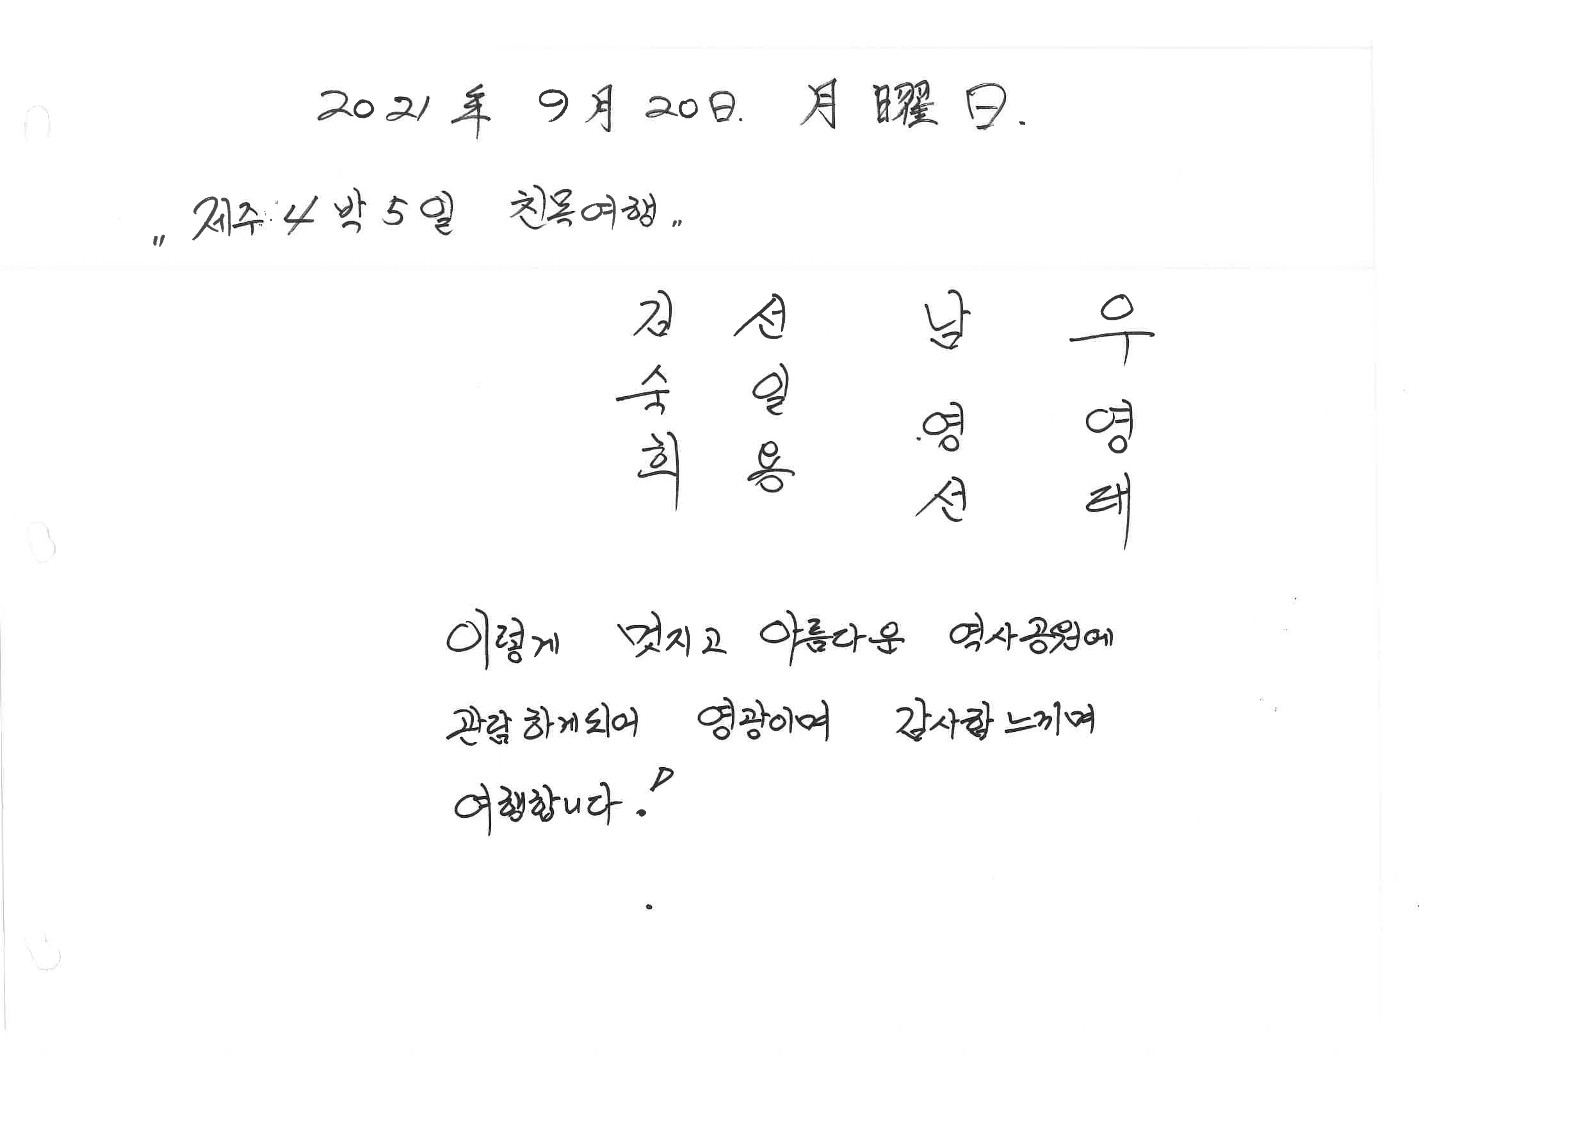 2021年 9月 20日. 月曜日.
"제주 4박5일 친목여행"
김숙희
선일용
남영선
우영래
이렇게 멋지고 아름다운 역사공원에
관람하게되어 영광이며 감사함느끼며
여행합니다.!